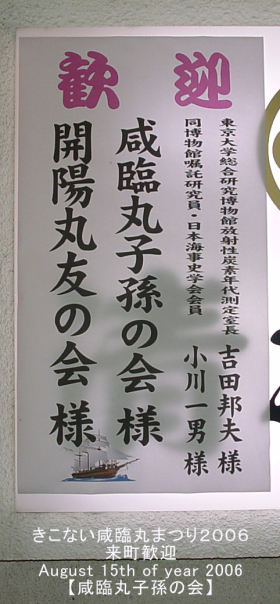 歓迎
東京大学総合研究博物館放射性炭素年代測定室長 吉田邦夫 様
同博物館嘱託研究員・日本海事史学会会員 小川一男 様
咸臨丸子孫の会 様
開陽丸友の会 様
きこない咸臨丸まつり2006
来町歓迎
August 15th of year 2006
【咸臨丸子孫の会】